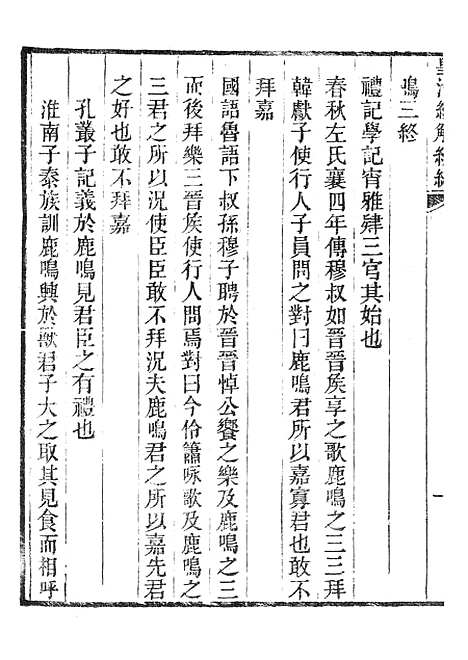 皇清經解續編
一
鳴三終
禮記學記宵雅肄三官其始也
春秋左氏襄四年傳穆叔如晉晉矦享之歌鹿鳴之三三拜
韓獻子使行人子員問之對曰鹿鳴君所以嘉寡君也敢不
拜嘉
國語魯語下叔孫穆子聘於晉晉悼公饗之樂及鹿鳴之三
而後拜樂三晉矦使行人問焉對曰今伶簫咏歌及鹿鳴之
三君之所以況使臣臣敢不拜況夫鹿鳴君之所以嘉先君
之好也敢不拜嘉
孔叢子記義於鹿鳴見君臣之有禮也
淮南子泰族訓鹿鳴興於獸君子大之取其見食而相呼